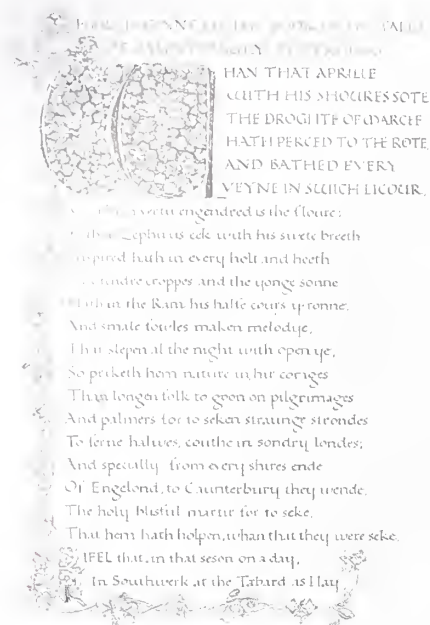 HAN THAT APRILLE
WITH HIS SHOURES SOTE
THE DROGHTE OF MARCHE
HATH PERCED TO THE ROTE,
AND BATHED EVERY
VEYNE IN SWICH LICOUR,
vertu engendred is the floure;
Zephirus eek with his swete breeth
hath in every holt and heeth
croppes and the yonge sonne
in the Ram his halfe cours y-ronne,
And smale fowles maken melodye,
That slepen al the night with open ye,
So priketh hem nature in hir corages
Than longen folk to goon on pilgrimages
And palmers for to seken straunge strondes
To ferne halwes, couthe in sondry londes;
And specially from every shires ende
Of Engelond, to Caunterbury they wende,
The holy blisful martir for to seke,
That hem hath holpen, whan that they were seke.
IFEL that, in that seson on a day,
In Southwerk at the Tabard as I lay